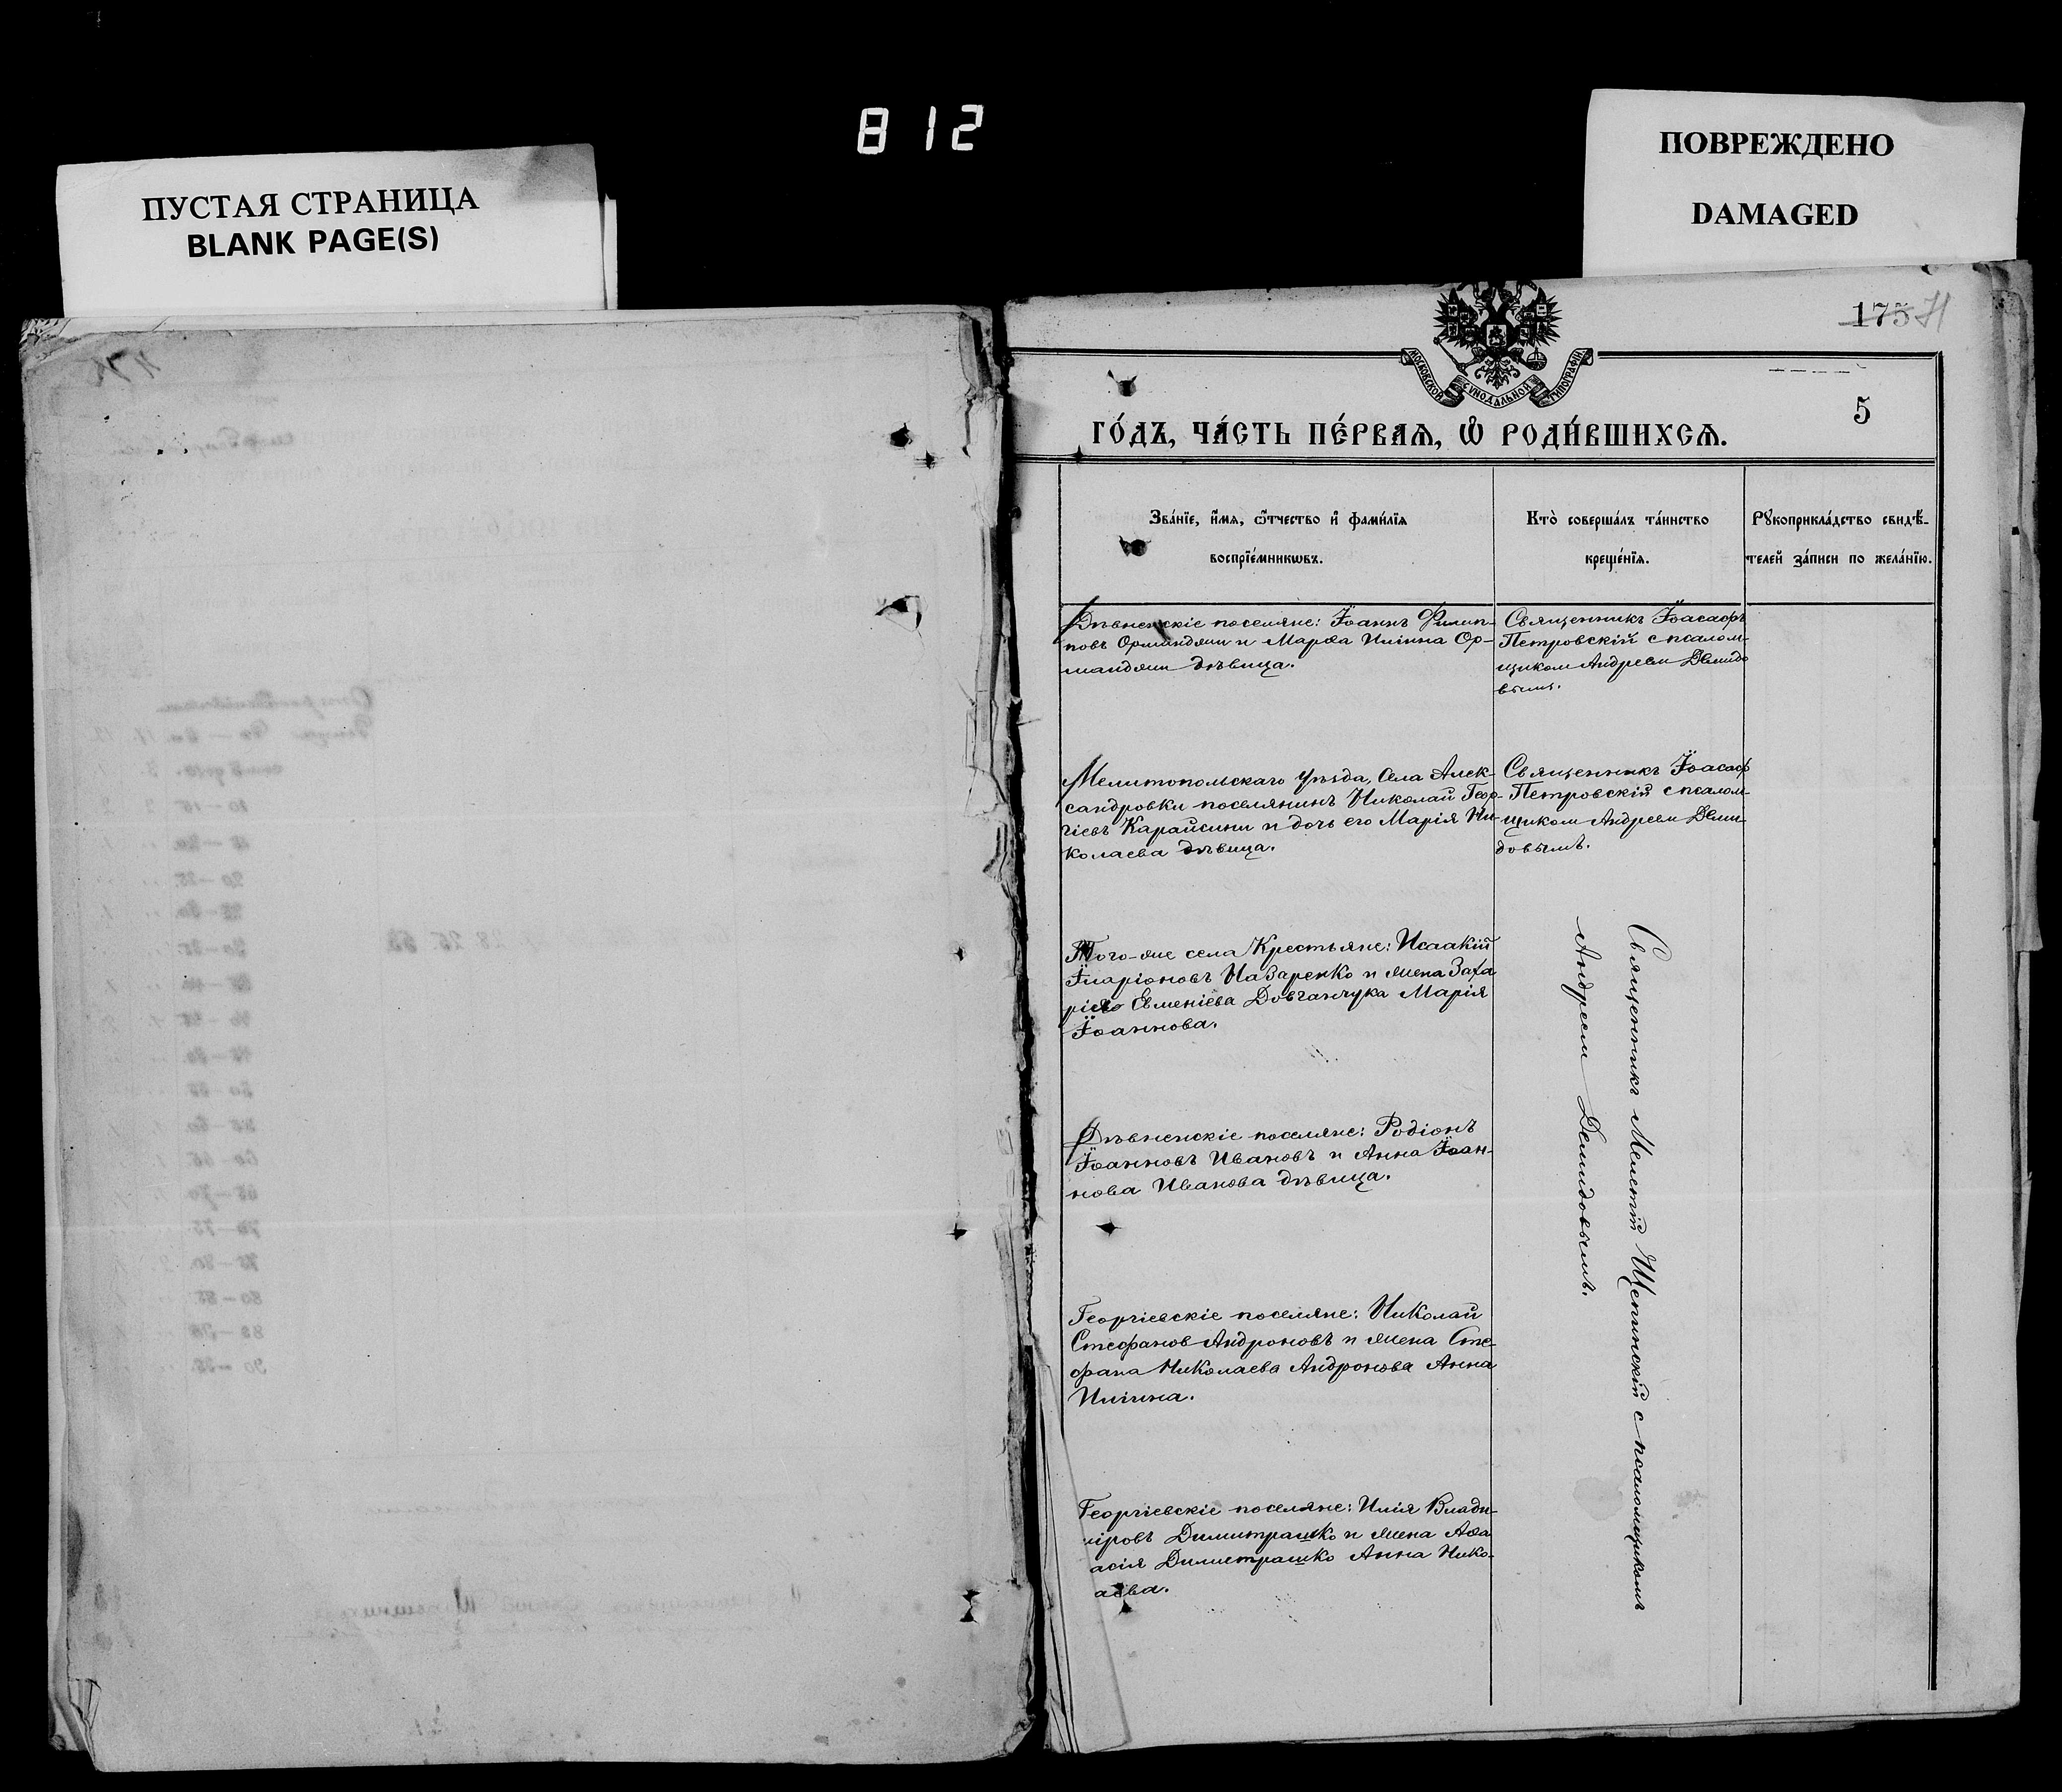 812
ПУСТАЯ СТРАНИЦА
BLANK PAGE(S)
ПОВРЕЖДЕНО
DAMAGED
175
МОСКОВСКОЙ СѴНОДАЛЬНОЙ ТИПОГРАФІИ
5
ГО́ДЪ, ЧА́СТЬ ПЕ́РВАѦ, Ѽ РОДИ́ВШИХСѦ.
Зва́нїе, и҆́мѧ, ѻ҆́тчество и҆ фами́лїѧ
воспрїе́мникѡвъ.
Кто̀ соверша́лъ та́инство
креще́нїѧ.
Рꙋкоприкла́дство свидѣ́-
телей за́писи по жела́нїю.
поселяне: Іоаннъ Филип-
повъ Орманджи и Марѳа Иліина Ор-
манджи дѣвица.
Священникъ Іоасафъ
Петровскій с псалом-
щиком Андреем Демидо
вымъ.
Мелитопольскаго уѣзда, села Алек-
сандровки поселянинъ Николай Геор-
гіевъ Карайсини и дочь его Марія Ни-
колаева дѣвица.
Священникъ Іоасаф
Петровскій с псалом-
щиком Андреем Деми-
довымъ.
Того-же села Крестьяне: Исаакій
Иларіоновъ Назаренко и жена Заха
рія Евменіева Довганчука Марія
Іоаннова.
Священникъ Мелетій Щепинскій с псаломщикомъ
Андреем Демидовымъ.
поселяне: Родіонъ
Іоанновъ Ивановъ и Анна Іоан-
нова Иванова дѣвица.
Георгіевскіе поселяне: Николай
Стефанов Андроновъ и жена Сте-
фана Николаева Андронова Анна
Иліина.
Георгіевскіе поселяне: Илія Влади-
міровъ Димитрашко и жена Аѳа
асія Димитрашко Анна Нико-
аева.